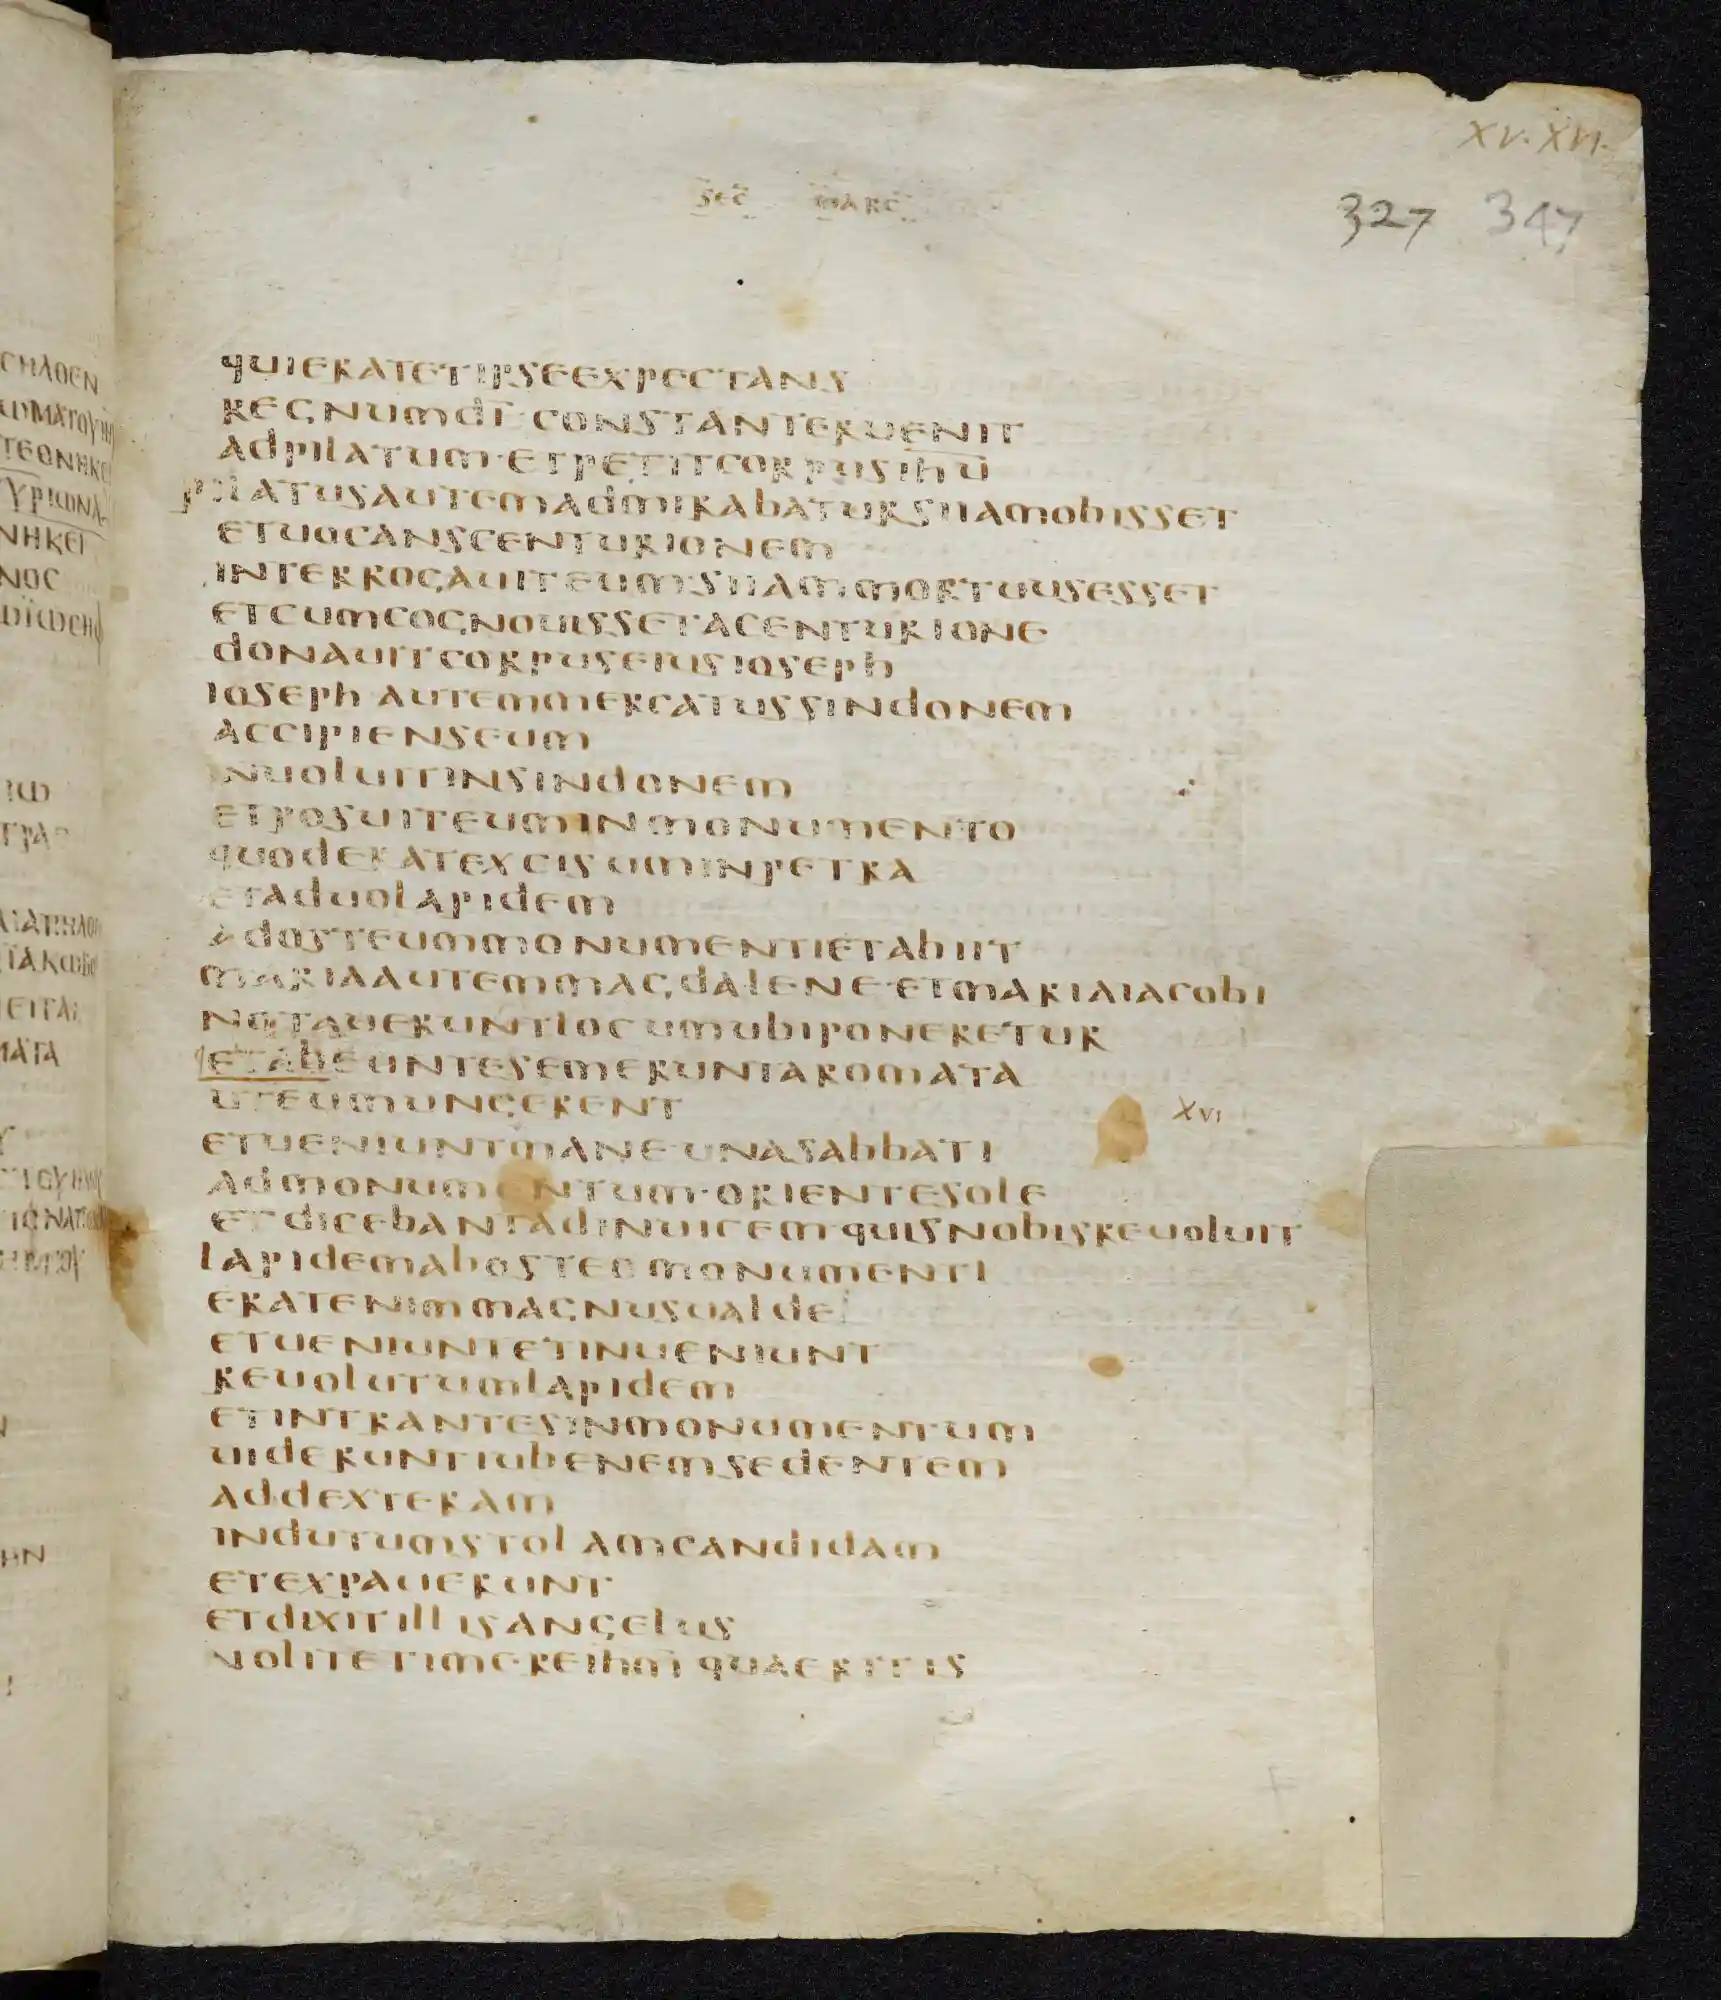 XV. XVI.
sec marc
327 347
quieratetipseexpectans
regnumdi· constanteruenit
adpilatum· etpetitcorpusihu
pilatusautemadmirabatursiiamobisset
etuocanscenturionem
interrogauiteum·siiammortuusesset
etcumcognouissetacenturione
donauitcorpuseiusioseph
ioseph autemmercatussindonem
accipienseum
inuoluitinsindonem
etposuiteuminmonumento
quoderatexcisuminpetra
etaduolapidem
adosteummonumentietabiit
mariaautemmagdalene·etmariaiacobi
notaueruntlocumubiponeretur
etabeuntesemeruntaromata
uteumungerent
XVI
etueniuntmane·unasabbati
admonumentum·orientesole
etdicebantadinuicem·quisnobisreuoluit
lapidemabosteomonumenti
eratenimmagnusualde
etueniuntetinueniunt
reuolutumlapidem
etintrantesinmonumentum
uideruntiubenemsedentem
addexteram
indutumstolamcandidam
etexpauerunt
etdixitillisangelus
nolitetimereihm quaeritis
CHΛΘΕΝ
ΩΜΑΤΟΥΙΗΥ
ΤΕΘΝΗΚΕ
ΤΥΡΙΩΝΑ
ΝΗΚΕΙ
ΝΟC
ΩΪΩCΗΦ
ΙΩ
ΜΑΤΑ
ΗΝ